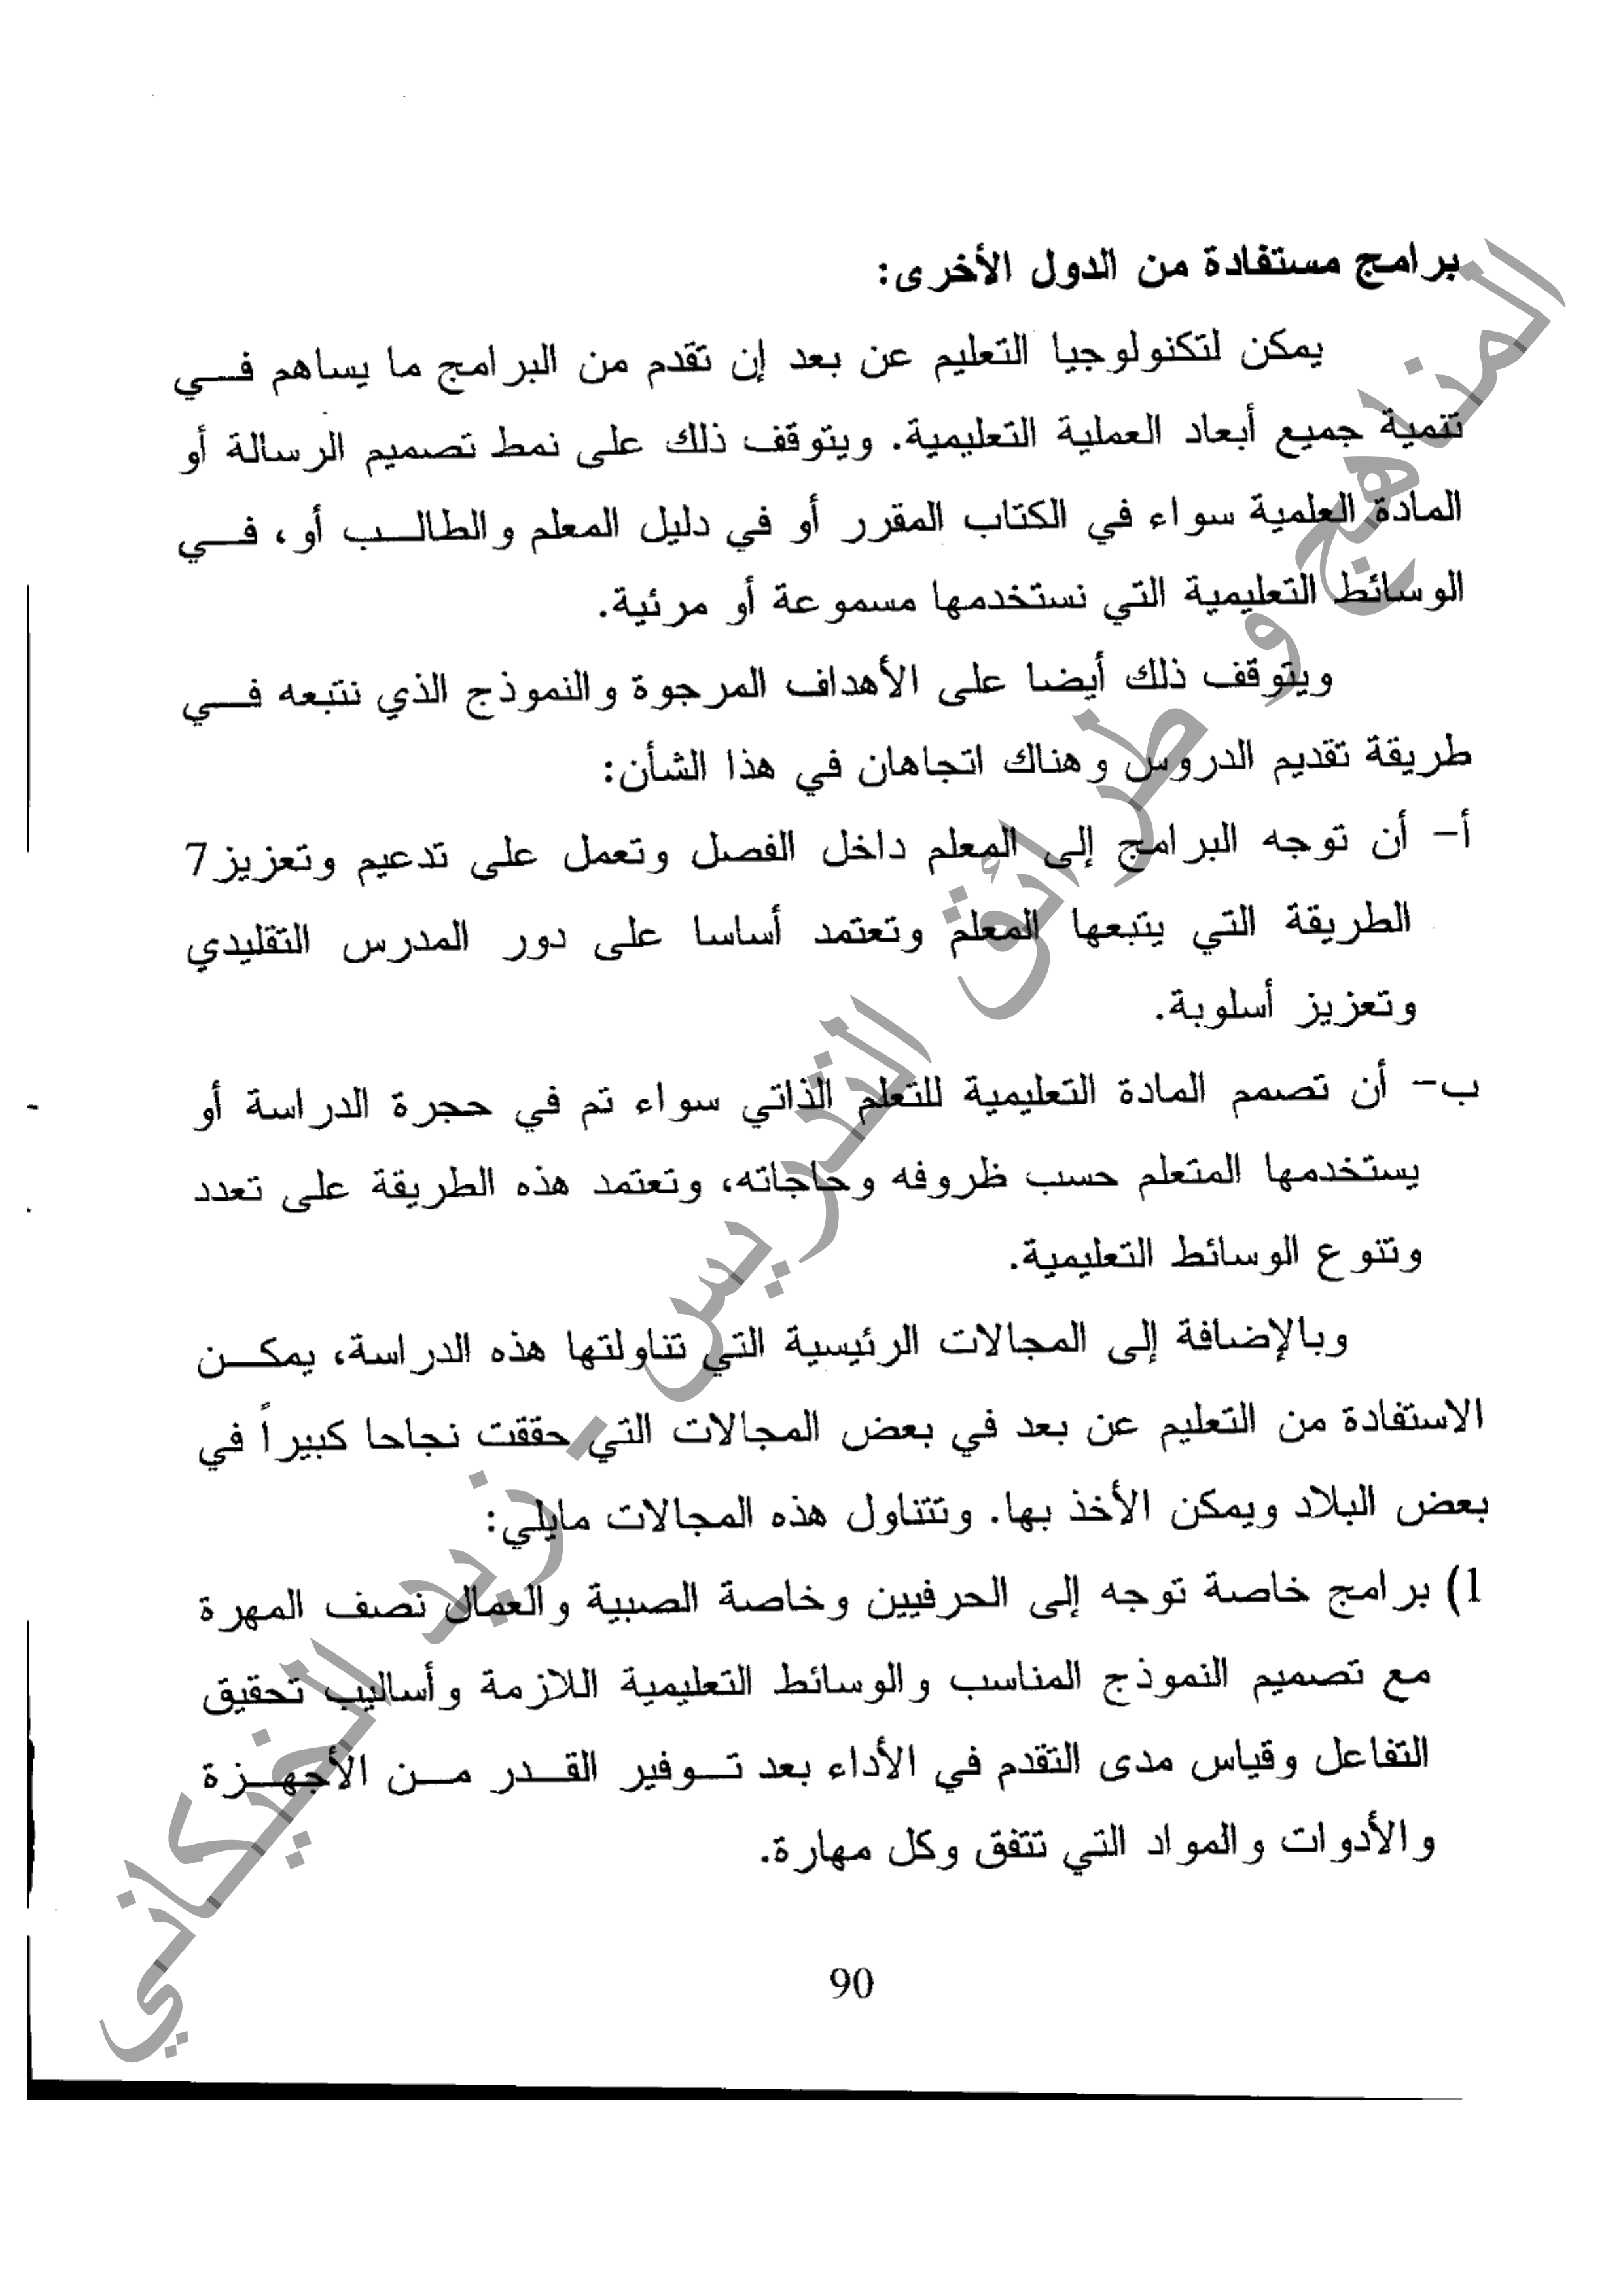 برامج مستفادة من الدول الأخرى:
يمكن لتكنولوجيا التعليم عن بعد إن تقدم من البرامج ما يساهم فـــي
تنمية جميع أبعاد العملية التعليمية. ويتوقف ذلك على نمط تصميم الرسالة أو
المادة العلمية سواء في الكتاب المقرر أو في دليل المعلم والطالـــب أو، فـــي
الوسائط التعليمية التي نستخدمها مسموعة أو مرئية.
ويتوقف ذلك أيضا على الأهداف المرجوة والنموذج الذي نتبعه فـــي
طريقة تقديم الدروس وهناك اتجاهان في هذا الشأن:
أ- أن توجه البرامج إلى المعلم داخل الفصل وتعمل على تدعيم وتعزيز7
الطريقة التي يتبعها المعلم وتعتمد أساسا على دور المدرس التقليدي
وتعزيز أسلوبة.
ب- أن تصمم المادة التعليمية للتعلم الذاتي سواء تم في حجرة الدراسة أو
يستخدمها المتعلم حسب ظروفه وحاجاته، وتعتمد هذه الطريقة على تعدد
وتنوع الوسائط التعليمية.
وبالإضافة إلى المجالات الرئيسية التي تناولتها هذه الدراسة، يمكـــن
الاستفادة من التعليم عن بعد في بعض المجالات التي حققت نجاحا كبيراً في
بعض البلاد ويمكن الأخذ بها. وتتناول هذه المجالات مايلي:
1) برامج خاصة توجه إلى الحرفيين وخاصة الصبية والعمال نصف المهرة
مع تصميم النموذج المناسب والوسائط التعليمية اللازمة وأساليب تحقيق
التفاعل وقياس مدى التقدم في الأداء بعد تـــوفير القـــدر مـــن الأجهـــزة
والأدوات والمواد التي تتفق وكل مهارة.
90
المناهج و طرائق التدريس - زيد الخيكاني